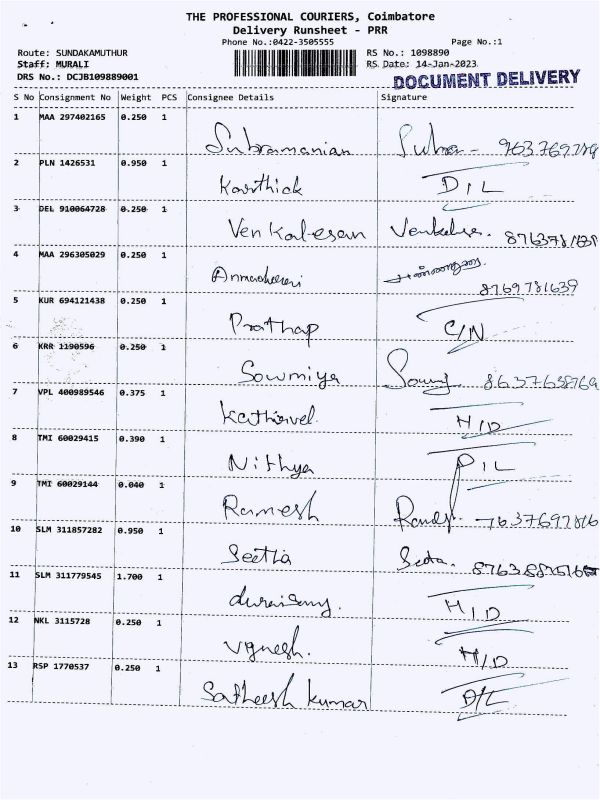 THE PROFESSIONAL COURIERS, Coimbatore
Delivery Runsheet - PRR
Phone No.:0422-3505555
Page No.:1
Route: SUNDAKAMUTHUR
RS No.: 1098890
Staff: MURALI
RS Date: 14-Jan-2023
DRS No.: DCJB109889001
DOCUMENT DELIVERY
S No Consignment No Weight PCS Consignee Details Signature
1 MAA 297402165 0.250 1
Subramanian Subra -
2 PLN 1426531 0.950 1
Karthick D/L
3 DEL 910064728 0.250 1
Venkatesan
4 MAA 296305029 0.250 1
8769781639
5 KUR 694121438 0.250 1
Prathap C/N
6 KRR 1190596 0.250 1
Sowmiya Sowmy 8637638769
7 VPL 400989546 0.375 1
Kathirvel. H/D
8 TMI 60029415 0.390 1
Nithya D/L
9 TMI 60029144 0.040 1
Ramesh
10 SLM 311857282 0.950 1
Seetha Seeta.
11 SLM 311779545 1.700 1
duraisamy. H/D
12 NKL 3115728 0.250 1
Vgnesh. H/D
13 RSP 1770537 0.250 1
Satheesh kumar D/L